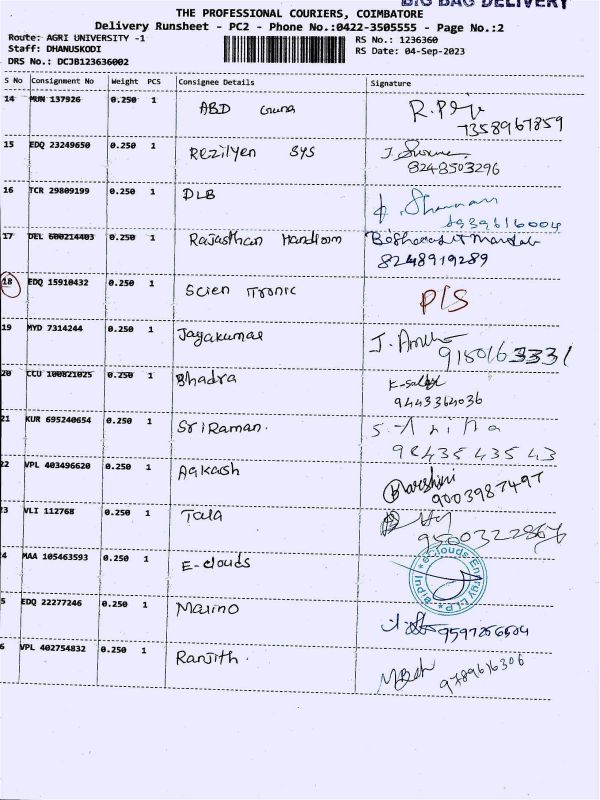 BIG BAG DELIVERY
THE PROFESSIONAL COURIERS, COIMBATORE
Delivery Runsheet - PC2 - Phone No.:0422-3505555 - Page No.:2
Route: AGRI UNIVERSITY -1 RS No.: 1236360
Staff: DHANUSKODI RS Date: 04-Sep-2023
DRS No.: DCJB123636002
S No Consignment No Weight PCS Consignee Details Signature
14 MUN 137926 0.250 1 ABD
7358967859
15 EDQ 23249650 0.250 1 Rezilyen SYS
8248503296
16 TCR 29809199 0.250 1 DLB
8939616004
17 DEL 600214403 0.250 1 Rajasthan Handloom
8248919289
18 EDQ 15910432 0.250 1 Scien Tronic P/S
19 MYD 7314244 0.250 1 Jayakumar
9150163331
20 CCU 100821025 0.250 1 Bhadra
9443364036
21 KUR 695240654 0.250 1 Sriraman.
98435 435 43
22 VPL 403496620 0.250 1 Aakash Harshini
9003987497
23 VLI 112768 0.250 1 Tala
24 MAA 105463593 0.250 1 E-clouds e-clouds Energy LLP
25 EDQ 22277246 0.250 1 Marino 9597266504
26 VPL 402754832 0.250 1 Ranjith. 9789616306